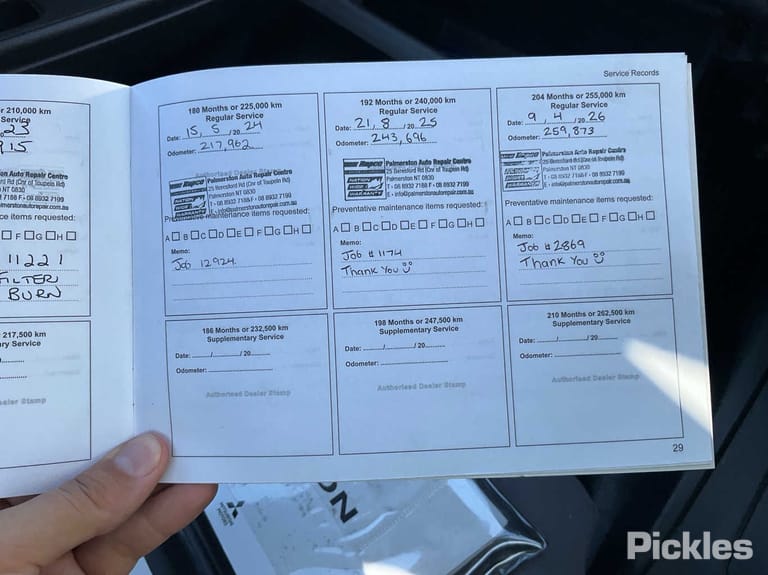 Service Records
r 210,000 km
Service
23
915
on Auto Repair Centre
Rd (Cnr of Toupein Rd)
NT 0830
nce items requested:
F G H
11221
FILTER
BURN
217,500 km
ry Service
ealer Stamp
180 Months or 225,000 km
Regular Service
Date: 15 / 5 / 20 24
Odometer: 217,962
Authorised Dealer Stamp
Repco Palmerston Auto Repair Centre
25 Beresford Rd (Cnr of Toupein Rd)
NATION WIDE WARRANTY
Palmerston NT 0830
T - 08 8932 7188 F - 08 8932 7199
E - info@palmerstonautorepair.com.au
Preventative maintenance items requested:
A B C D E F G H
Memo:
Job 12924
186 Months or 232,500 km
Supplementary Service
Date: ....../....../20......
Odometer: ......
Authorised Dealer Stamp
192 Months or 240,000 km
Regular Service
Date: 21 / 8 / 20 25
Odometer: 243,696
Repco Palmerston Auto Repair Centre
25 Beresford Rd (Cnr of Toupein Rd)
NATION WIDE WARRANTY
Palmerston NT 0830
T - 08 8932 7188 F - 08 8932 7199
E - info@palmerstonautorepair.com.au
Preventative maintenance items requested:
A B C D E F G H
Memo:
Job # 1174
Thank You
198 Months or 247,500 km
Supplementary Service
Date: ....../....../20......
Odometer: ......
Authorised Dealer Stamp
204 Months or 255,000 km
Regular Service
Date: 9 / 4 / 20 26
Odometer: 259,873
Repco Palmerston Auto Repair Centre
25 Beresford Rd (Cnr of Toupein Rd)
NATION WIDE WARRANTY
Palmerston NT 0830
T - 08 8932 7188 F - 08 8932 7199
E - info@palmerstonautorepair.com.au
Preventative maintenance items requested:
A B C D E F G H
Memo:
Job # 2869
Thank You
210 Months or 262,500 km
Supplementary Service
Date: ....../....../20......
Odometer: ......
Authorised Dealer Stamp
29
ON
Pickles